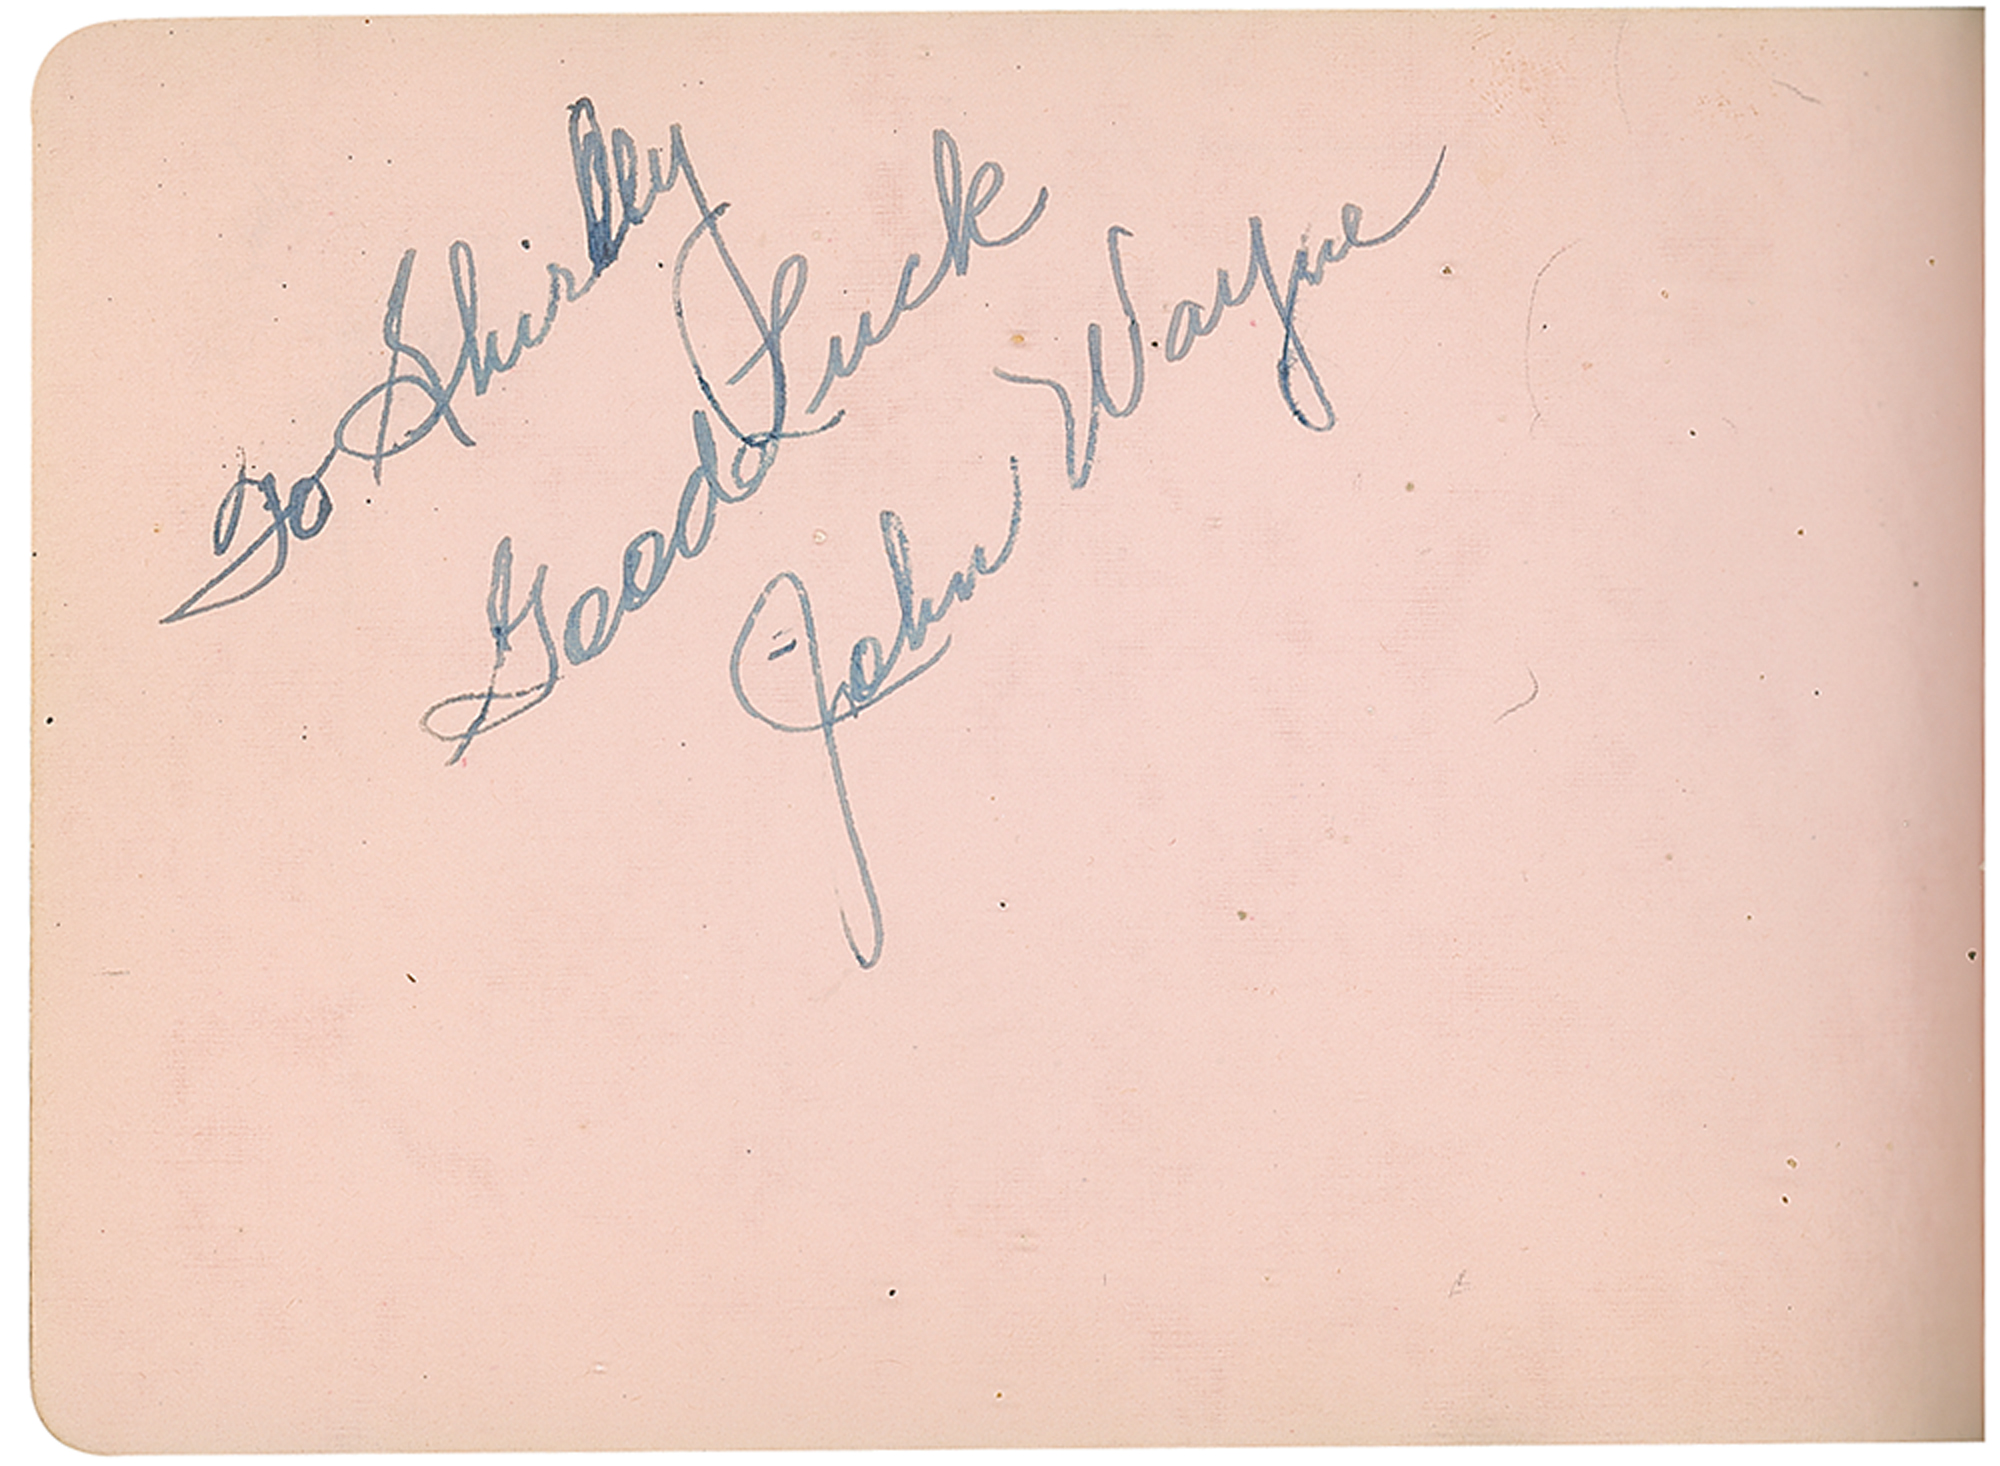 To Shirley
Good Luck
John Wayne